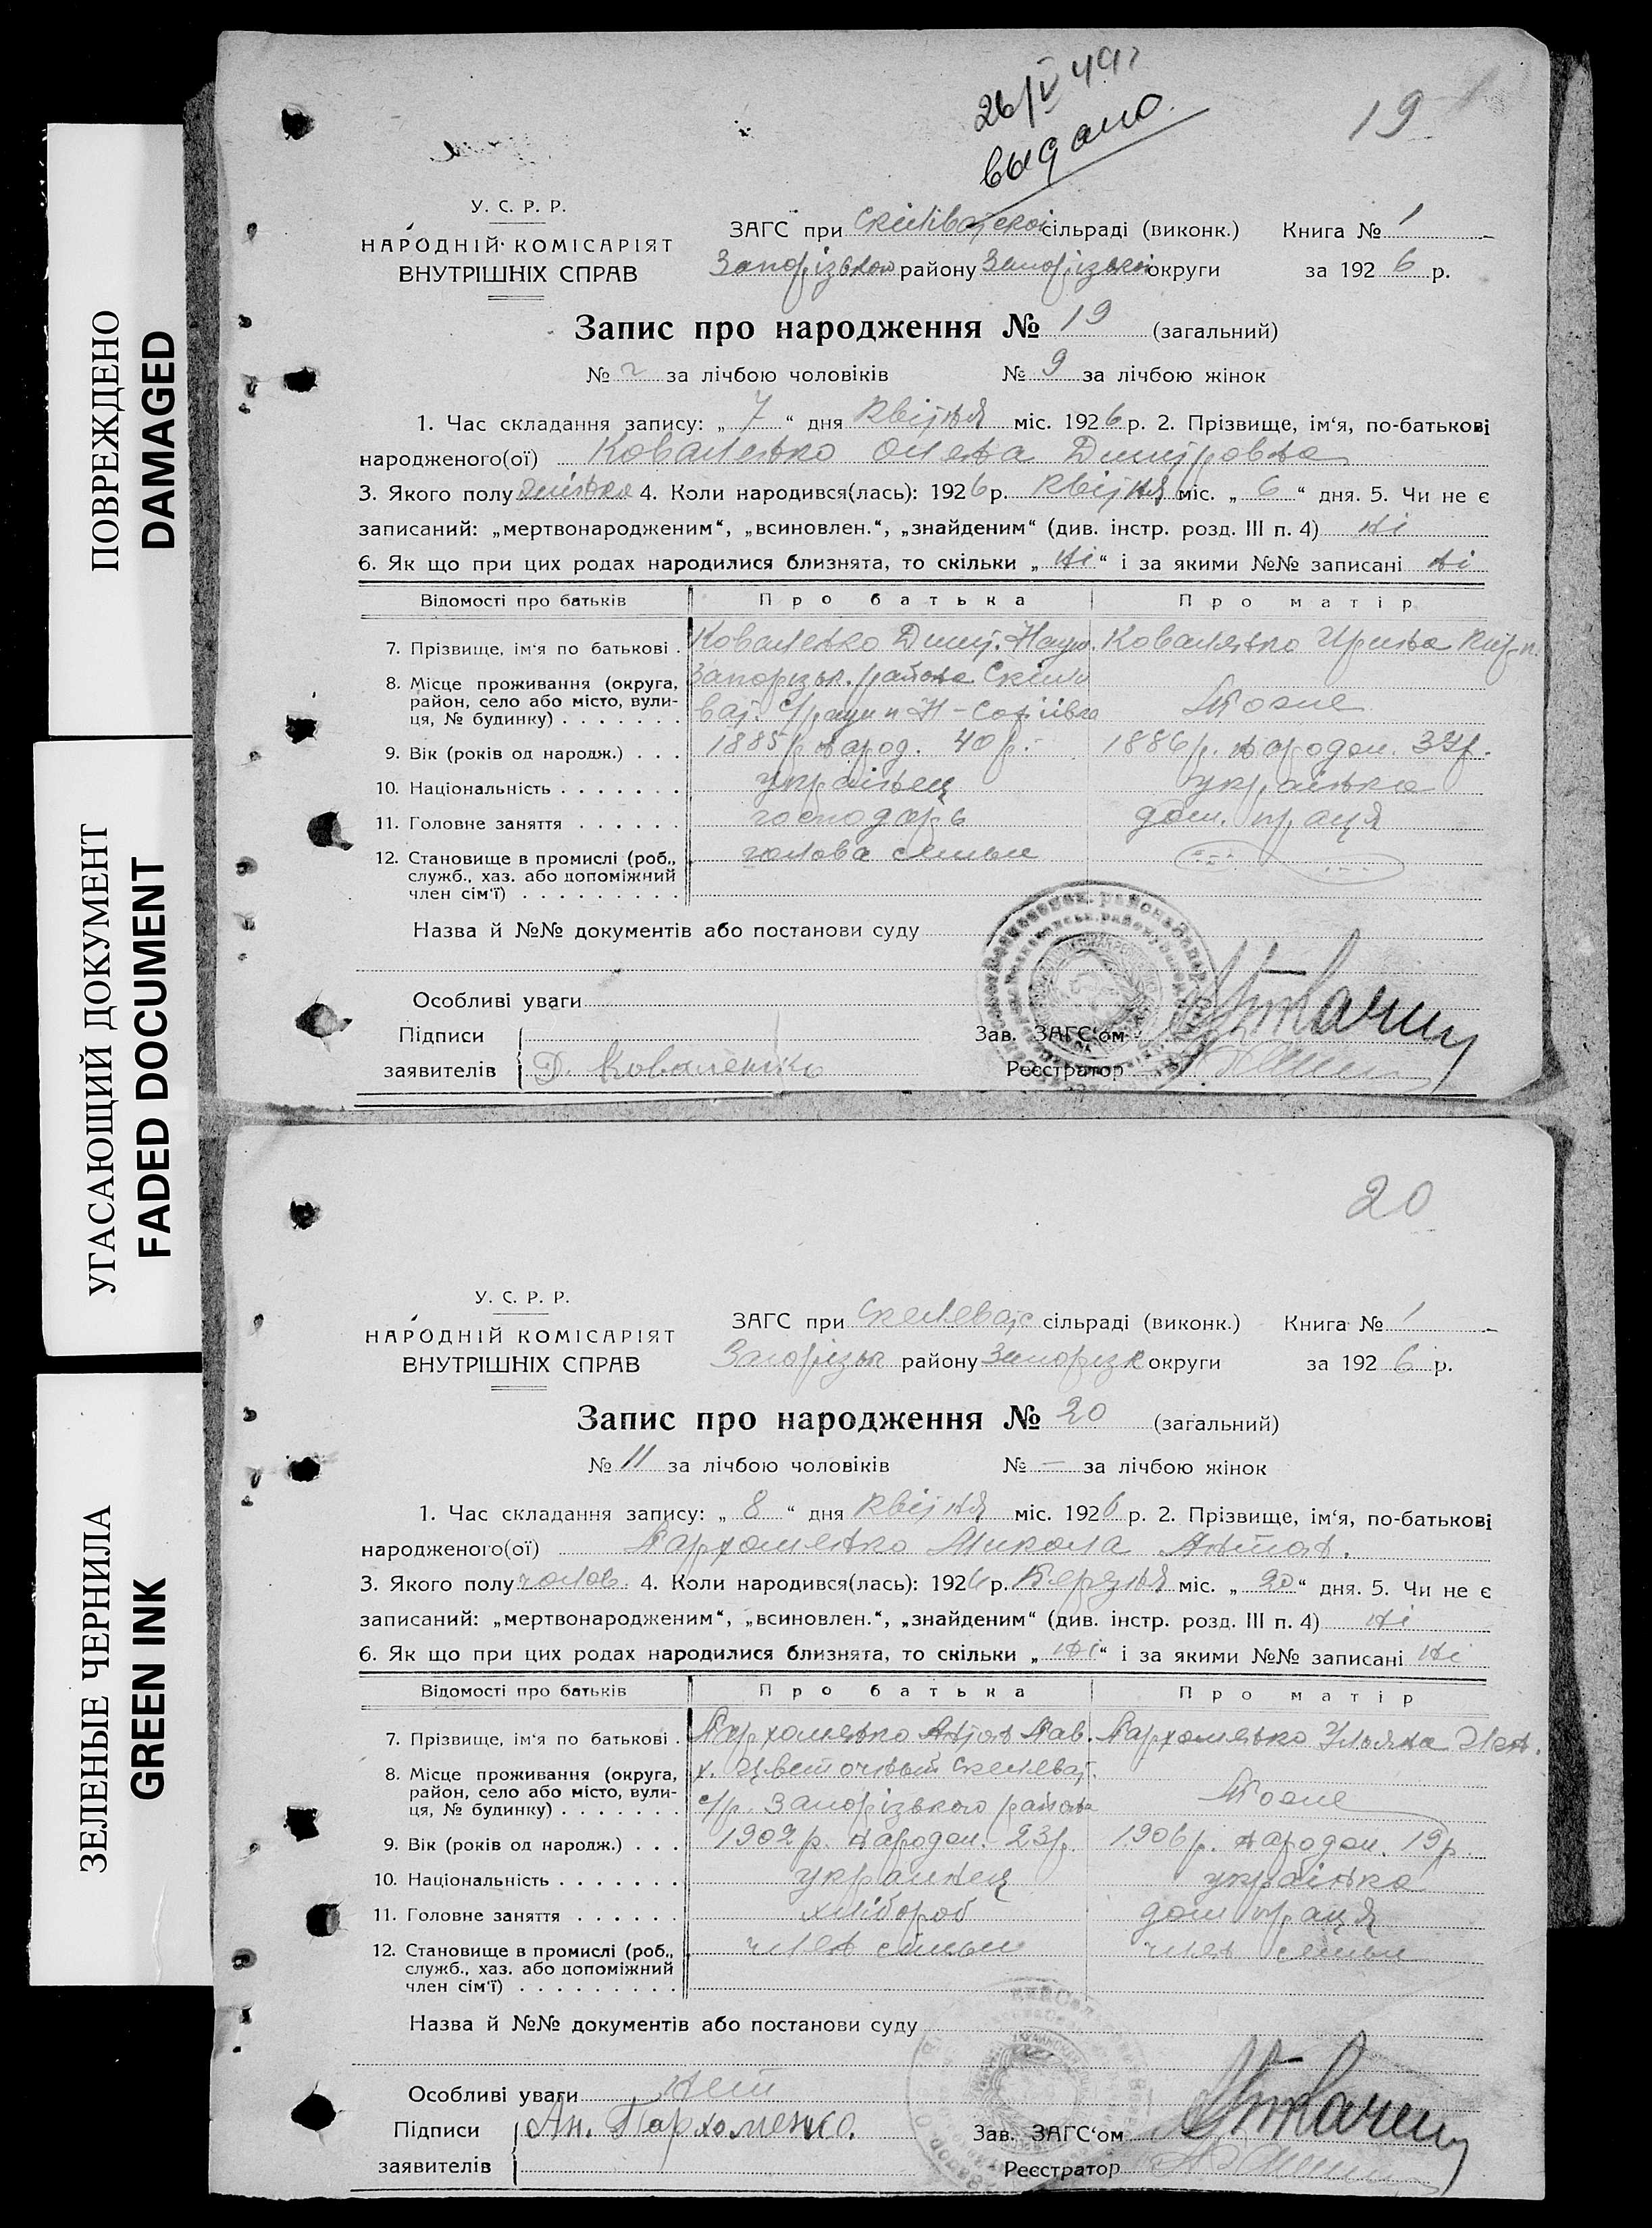 ПОВРЕЖДЕНО
DAMAGED
УГАСАЮЩИЙ ДОКУМЕНТ
FADED DOCUMENT
ЗЕЛЕНЫЕ ЧЕРНИЛА
GREEN INK
26/V 49г
выдано
19
У. С. Р. Р.
НАРОДНІЙ КОМІСАРІЯТ
ВНУТРІШНІХ СПРАВ
ЗАГС при сільраді (виконк.) Книга № 1
району округи за 1926 р.
Запис про народження № 19 (загальний)
№ за лічбою чоловіків № 9 за лічбою жінок
1. Час складання запису: „ 7 “ дня квітня міс. 1926 р. 2. Прізвище, ім‘я, по-батькові
народженого(ої) Коваленко Олена Дмитровна
3. Якого полу жінка 4. Коли народився(лась): 1926 р. квітня міс. „ 6 “ дня. 5. Чи не є
записаний: „мертвонародженим“, „всиновлен.“, „знайденим“ (див. інстр. розд. III п. 4) ні
6. Як що при цих родах народилися близнята, то скільки „ ні “ і за якими №№ записані ні
Відомості про батьків Про батька Про матір
7. Прізвище, ім‘я по батькові . Коваленко Дмит. Наум. Коваленко Ирина
8. Місце проживання (округа, Запорізьк. района
район, село або місто, вули- с/ради Н-Софіівка Тоже
ця, № будинку) . . . . . . .
9. Вік (років од народж.) . . . 1885 р. народ. 40 р. 1886 р. народж.
10. Національність . . . . . . . українець українка
11. Головне заняття . . . . . . господарь дом. праця
12. Становище в промислі (роб., голова семьи
служб., хаз. або допоміжний
член сім‘ї) . . . . . . . . .
Назва й №№ документів або постанови суду
Особливі уваги
Підписи Зав. ЗАГС‘ом
заявителів Д. Коваленко Реєстратор
20
У. С. Р. Р.
НАРОДНІЙ КОМІСАРІЯТ
ВНУТРІШНІХ СПРАВ
ЗАГС при Скелеват сільраді (виконк.) Книга № 1
Запорізьк району Запорізк округи за 1926 р.
Запис про народження № 20 (загальний)
№ 11 за лічбою чоловіків № — за лічбою жінок
1. Час складання запису: „ 8 “ дня квітня міс. 1926 р. 2. Прізвище, ім‘я, по-батькові
народженого(ої) Пархоменко Микола Антон.
3. Якого полу чолов. 4. Коли народився(лась): 1926 р. Березня міс. „ 20 “ дня. 5. Чи не є
записаний: „мертвонародженим“, „всиновлен.“, „знайденим“ (див. інстр. розд. III п. 4) ні
6. Як що при цих родах народилися близнята, то скільки „ ні “ і за якими №№ записані ні
Відомості про батьків Про батька Про матір
7. Прізвище, ім‘я по батькові . Пархоменко Антон Пав. Пархоменко Ульяна
8. Місце проживання (округа, х. Цветочный Скелеват.
район, село або місто, вули- с/р. Запорізького района Тоже
ця, № будинку) . . . . . . .
9. Вік (років од народж.) . . . 1902 р. народж. 23 р. 1906 р. народж. 19 р.
10. Національність . . . . . . . украинец українка
11. Головне заняття . . . . . . хлібороб дом праця
12. Становище в промислі (роб., член семьи член семьи
служб., хаз. або допоміжний
член сім‘ї) . . . . . . . . .
Назва й №№ документів або постанови суду
Особливі уваги нет
Підписи Ан. Пархоменко. Зав. ЗАГС‘ом
заявителів Реєстратор